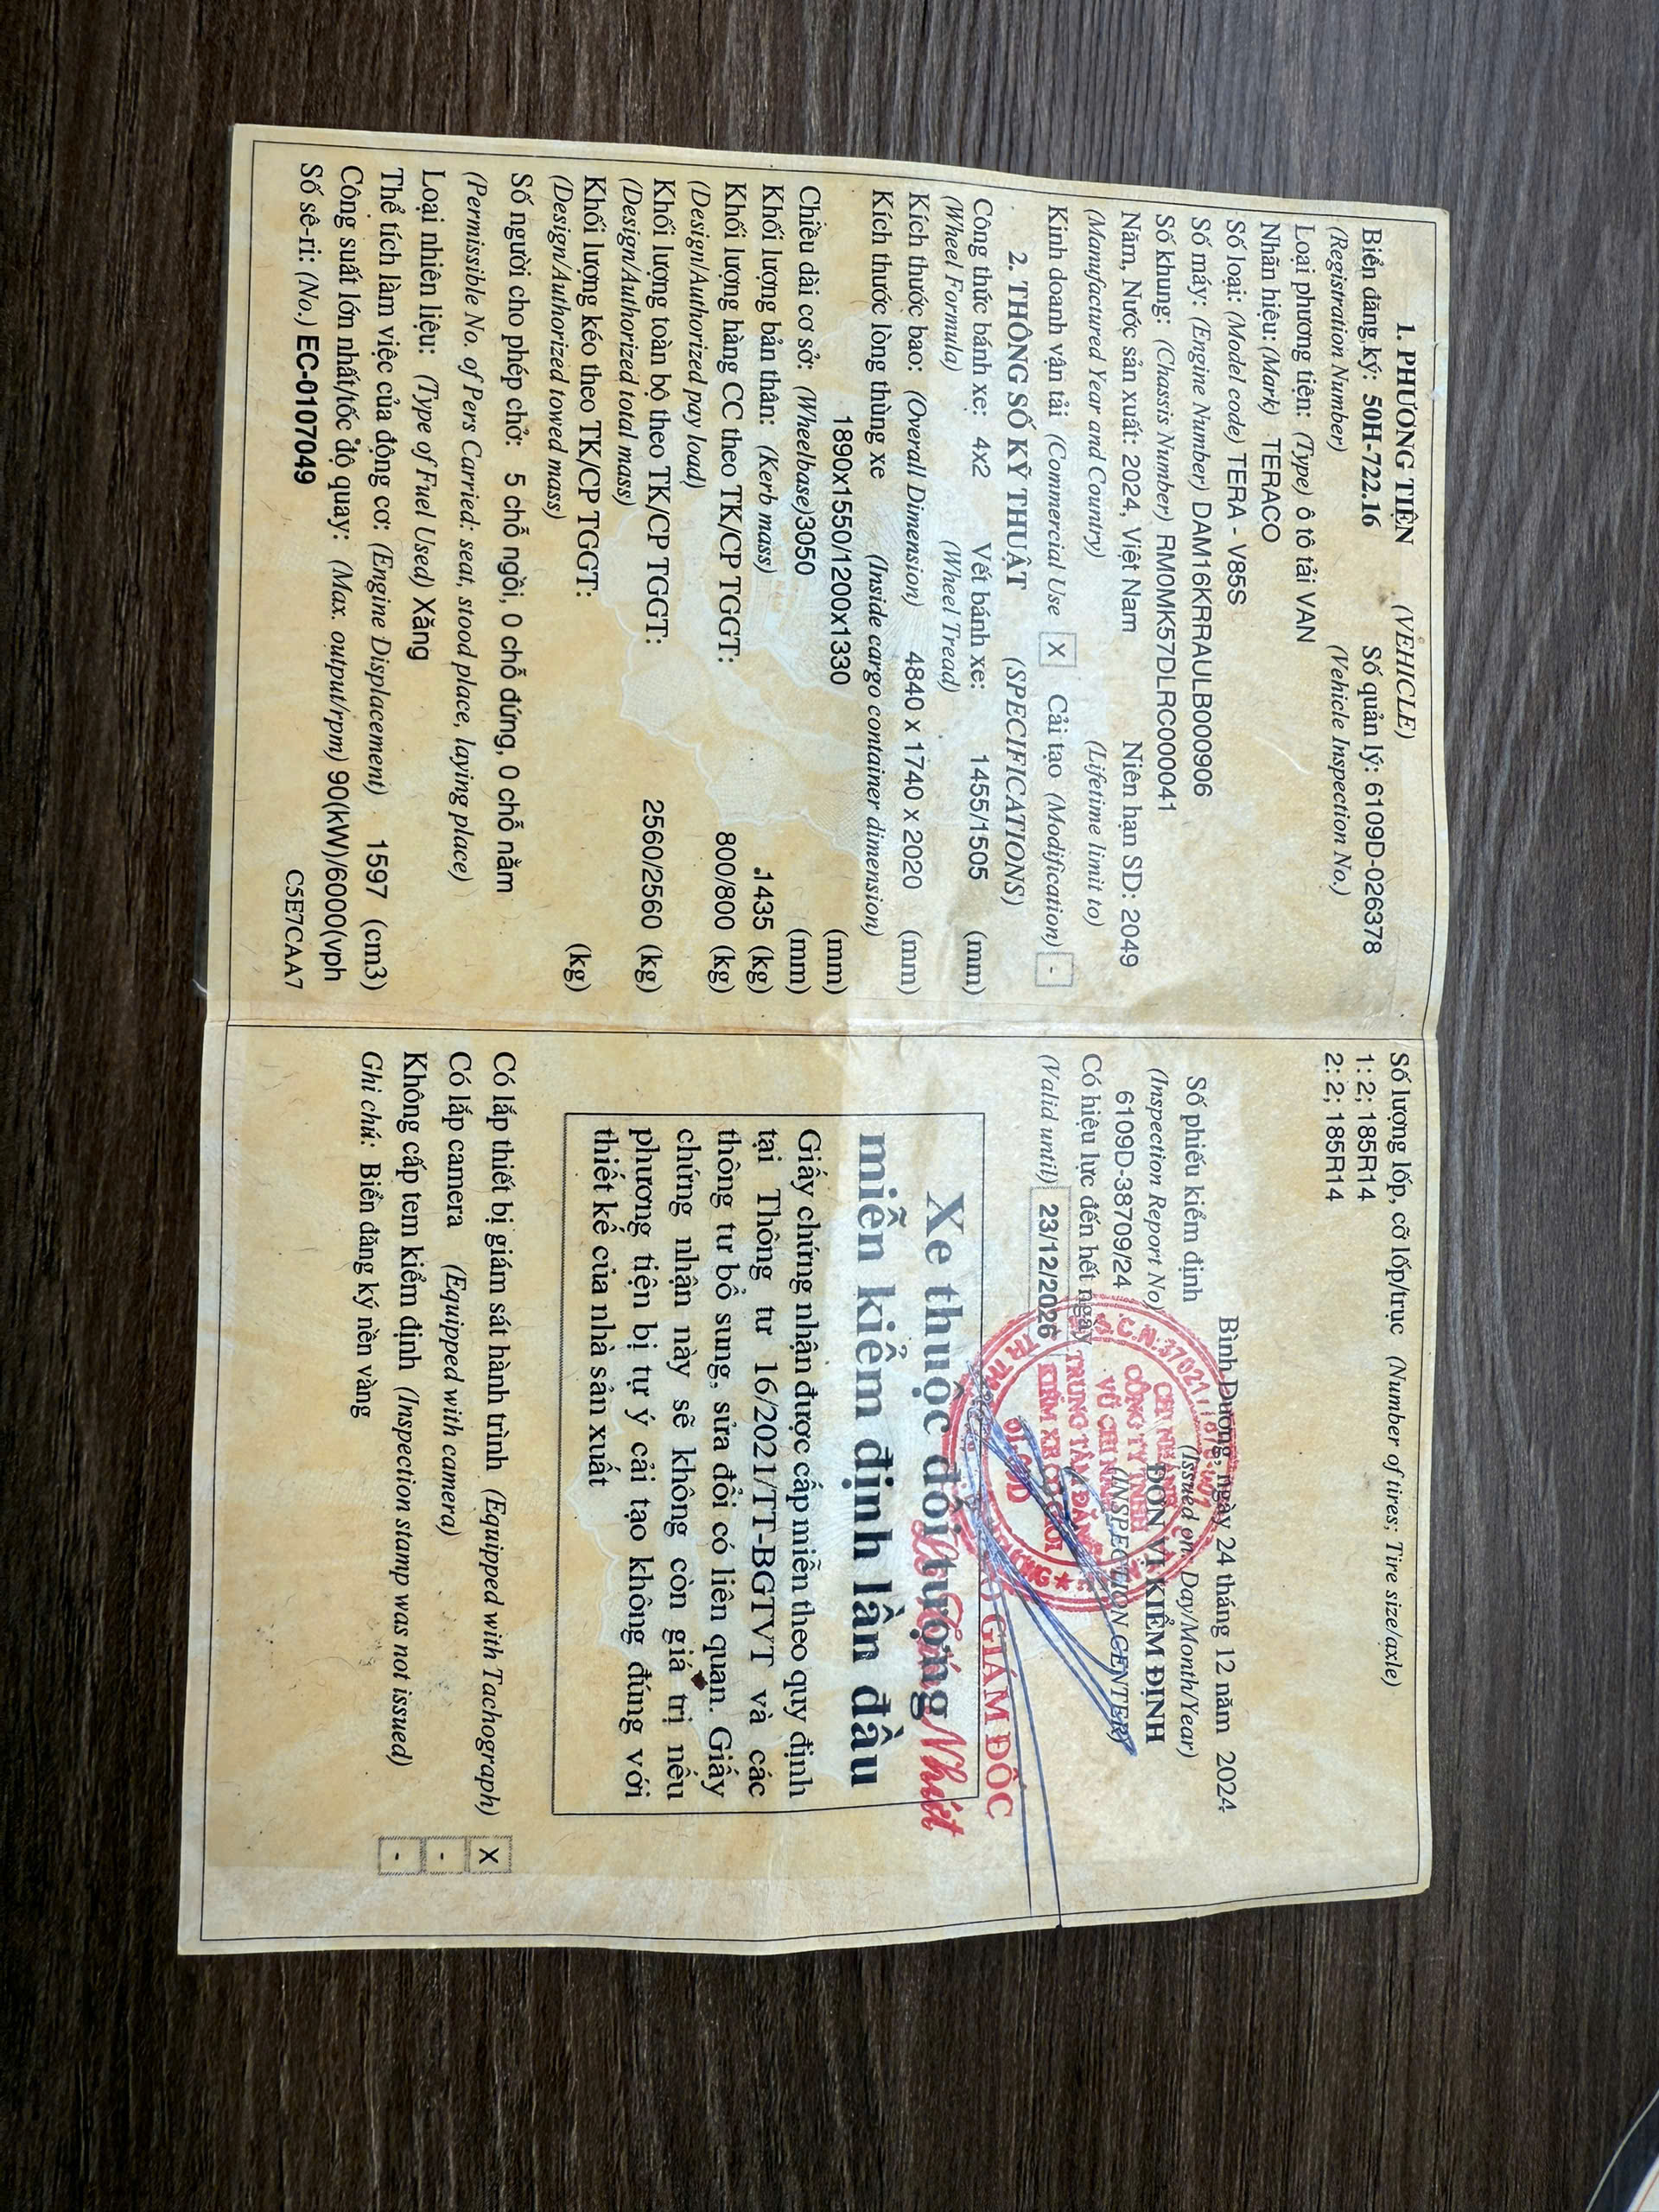 1. PHƯƠNG TIỆN (VEHICLE)
Biển đăng ký: 50H-722.16 Số quản lý: 6109D-026378
(Registration Number) (Vehicle Inspection No.)
Loại phương tiện: (Type) ô tô tải VAN
Nhãn hiệu: (Mark) TERACO
Số loại: (Model code) TERA - V85S
Số máy: (Engine Number) DAM16KRRAULB000906
Số khung: (Chassis Number) RM0MK57DLRC000041
Năm, Nước sản xuất: 2024, Việt Nam Niên hạn SD: 2049
(Manufactured Year and Country) (Lifetime limit to)
Kinh doanh vận tải (Commercial Use X Cải tạo (Modification) -
2. THÔNG SỐ KỸ THUẬT (SPECIFICATIONS)
Công thức bánh xe: 4x2 Vết bánh xe: 1455/1505 (mm)
(Wheel Formula) (Wheel Tread)
Kích thước bao: (Overall Dimension) 4840 x 1740 x 2020 (mm)
Kích thước lòng thùng xe (Inside cargo container dimension)
1890x1550/1200x1330 (mm)
Chiều dài cơ sở: (Wheelbase)3050 (mm)
Khối lượng bản thân: (Kerb mass) 1435 (kg)
Khối lượng hàng CC theo TK/CP TGGT: 800/800 (kg)
(Design/Authorized pay load)
Khối lượng toàn bộ theo TK/CP TGGT: 2560/2560 (kg)
(Design/Authorized total mass)
Khối lượng kéo theo TK/CP TGGT: (kg)
(Design/Authorized towed mass)
Số người cho phép chở: 5 chỗ ngồi, 0 chỗ đứng, 0 chỗ nằm
(Permissible No. of Pers Carried: seat, stood place, laying place)
Loại nhiên liệu: (Type of Fuel Used) Xăng
Thể tích làm việc của động cơ: (Engine Displacement) 1597 (cm3)
Công suất lớn nhất/tốc độ quay: (Max. output/rpm) 90(kW)/6000(vph
Số sê-ri: (No.) EC-0107049 C5E7CAA7
Số lượng lốp, cỡ lốp/trục (Number of tires; Tire size/axle)
1: 2; 185R14
2: 2; 185R14
Bình Dương, ngày 24 tháng 12 năm 2024
(Issued on: Day/Month/Year)
Số phiếu kiểm định ĐƠN VỊ KIỂM ĐỊNH
(Inspection Report No) (INSPECTION CENTER)
6109D-38709/24
Có hiệu lực đến hết ngày
(Valid until) 23/12/2026
CHI NHÁNH
CÔNG TY TNHH
TRUNG TÂM ĐĂNG
KIỂM XE CƠ GIỚI
61.09D
GIÁM ĐỐC
Nhứt
Xe thuộc đối tượng
miễn kiểm định lần đầu
Giấy chứng nhận được cấp miễn theo quy định
tại Thông tư 16/2021/TT-BGTVT và các
thông tư bổ sung, sửa đổi có liên quan. Giấy
chứng nhận này sẽ không còn giá trị nếu
phương tiện bị tự ý cải tạo không đúng với
thiết kế của nhà sản xuất
Có lắp thiết bị giám sát hành trình (Equipped with Tachograph) X
Có lắp camera (Equipped with camera) -
Không cấp tem kiểm định (Inspection stamp was not issued) -
Ghi chú: Biển đăng ký nền vàng